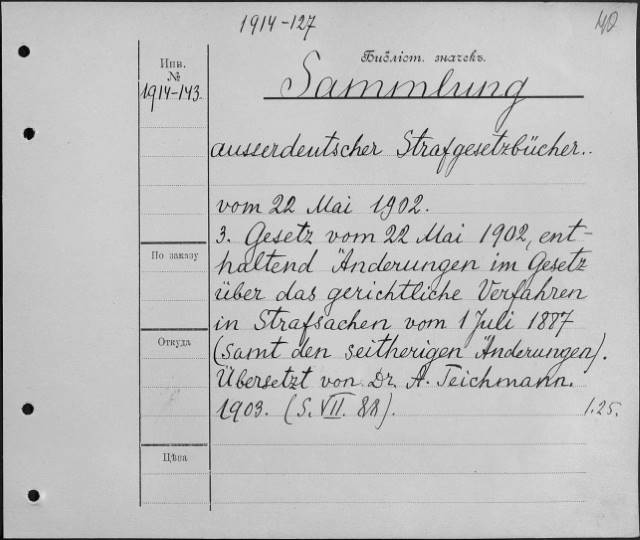 1914-127
40
Библіот. значекъ.
Инв. №
1914-143.
Sammlung
ausserdeutscher Strafgesetzbücher..
vom 22 Mai 1902.
3. Gesetz vom 22 Mai 1902, ent-
По заказу
haltend Änderungen im Gesetz
über das gerichtliche Verfahren
in Strafsachen vom 1 Juli 1887
Откуда
(samt den seitherigen Änderungen).
Übersetzt von Dr. A. Teichmann.
1903. (S. VII. 88).
1.25.
Цѣна